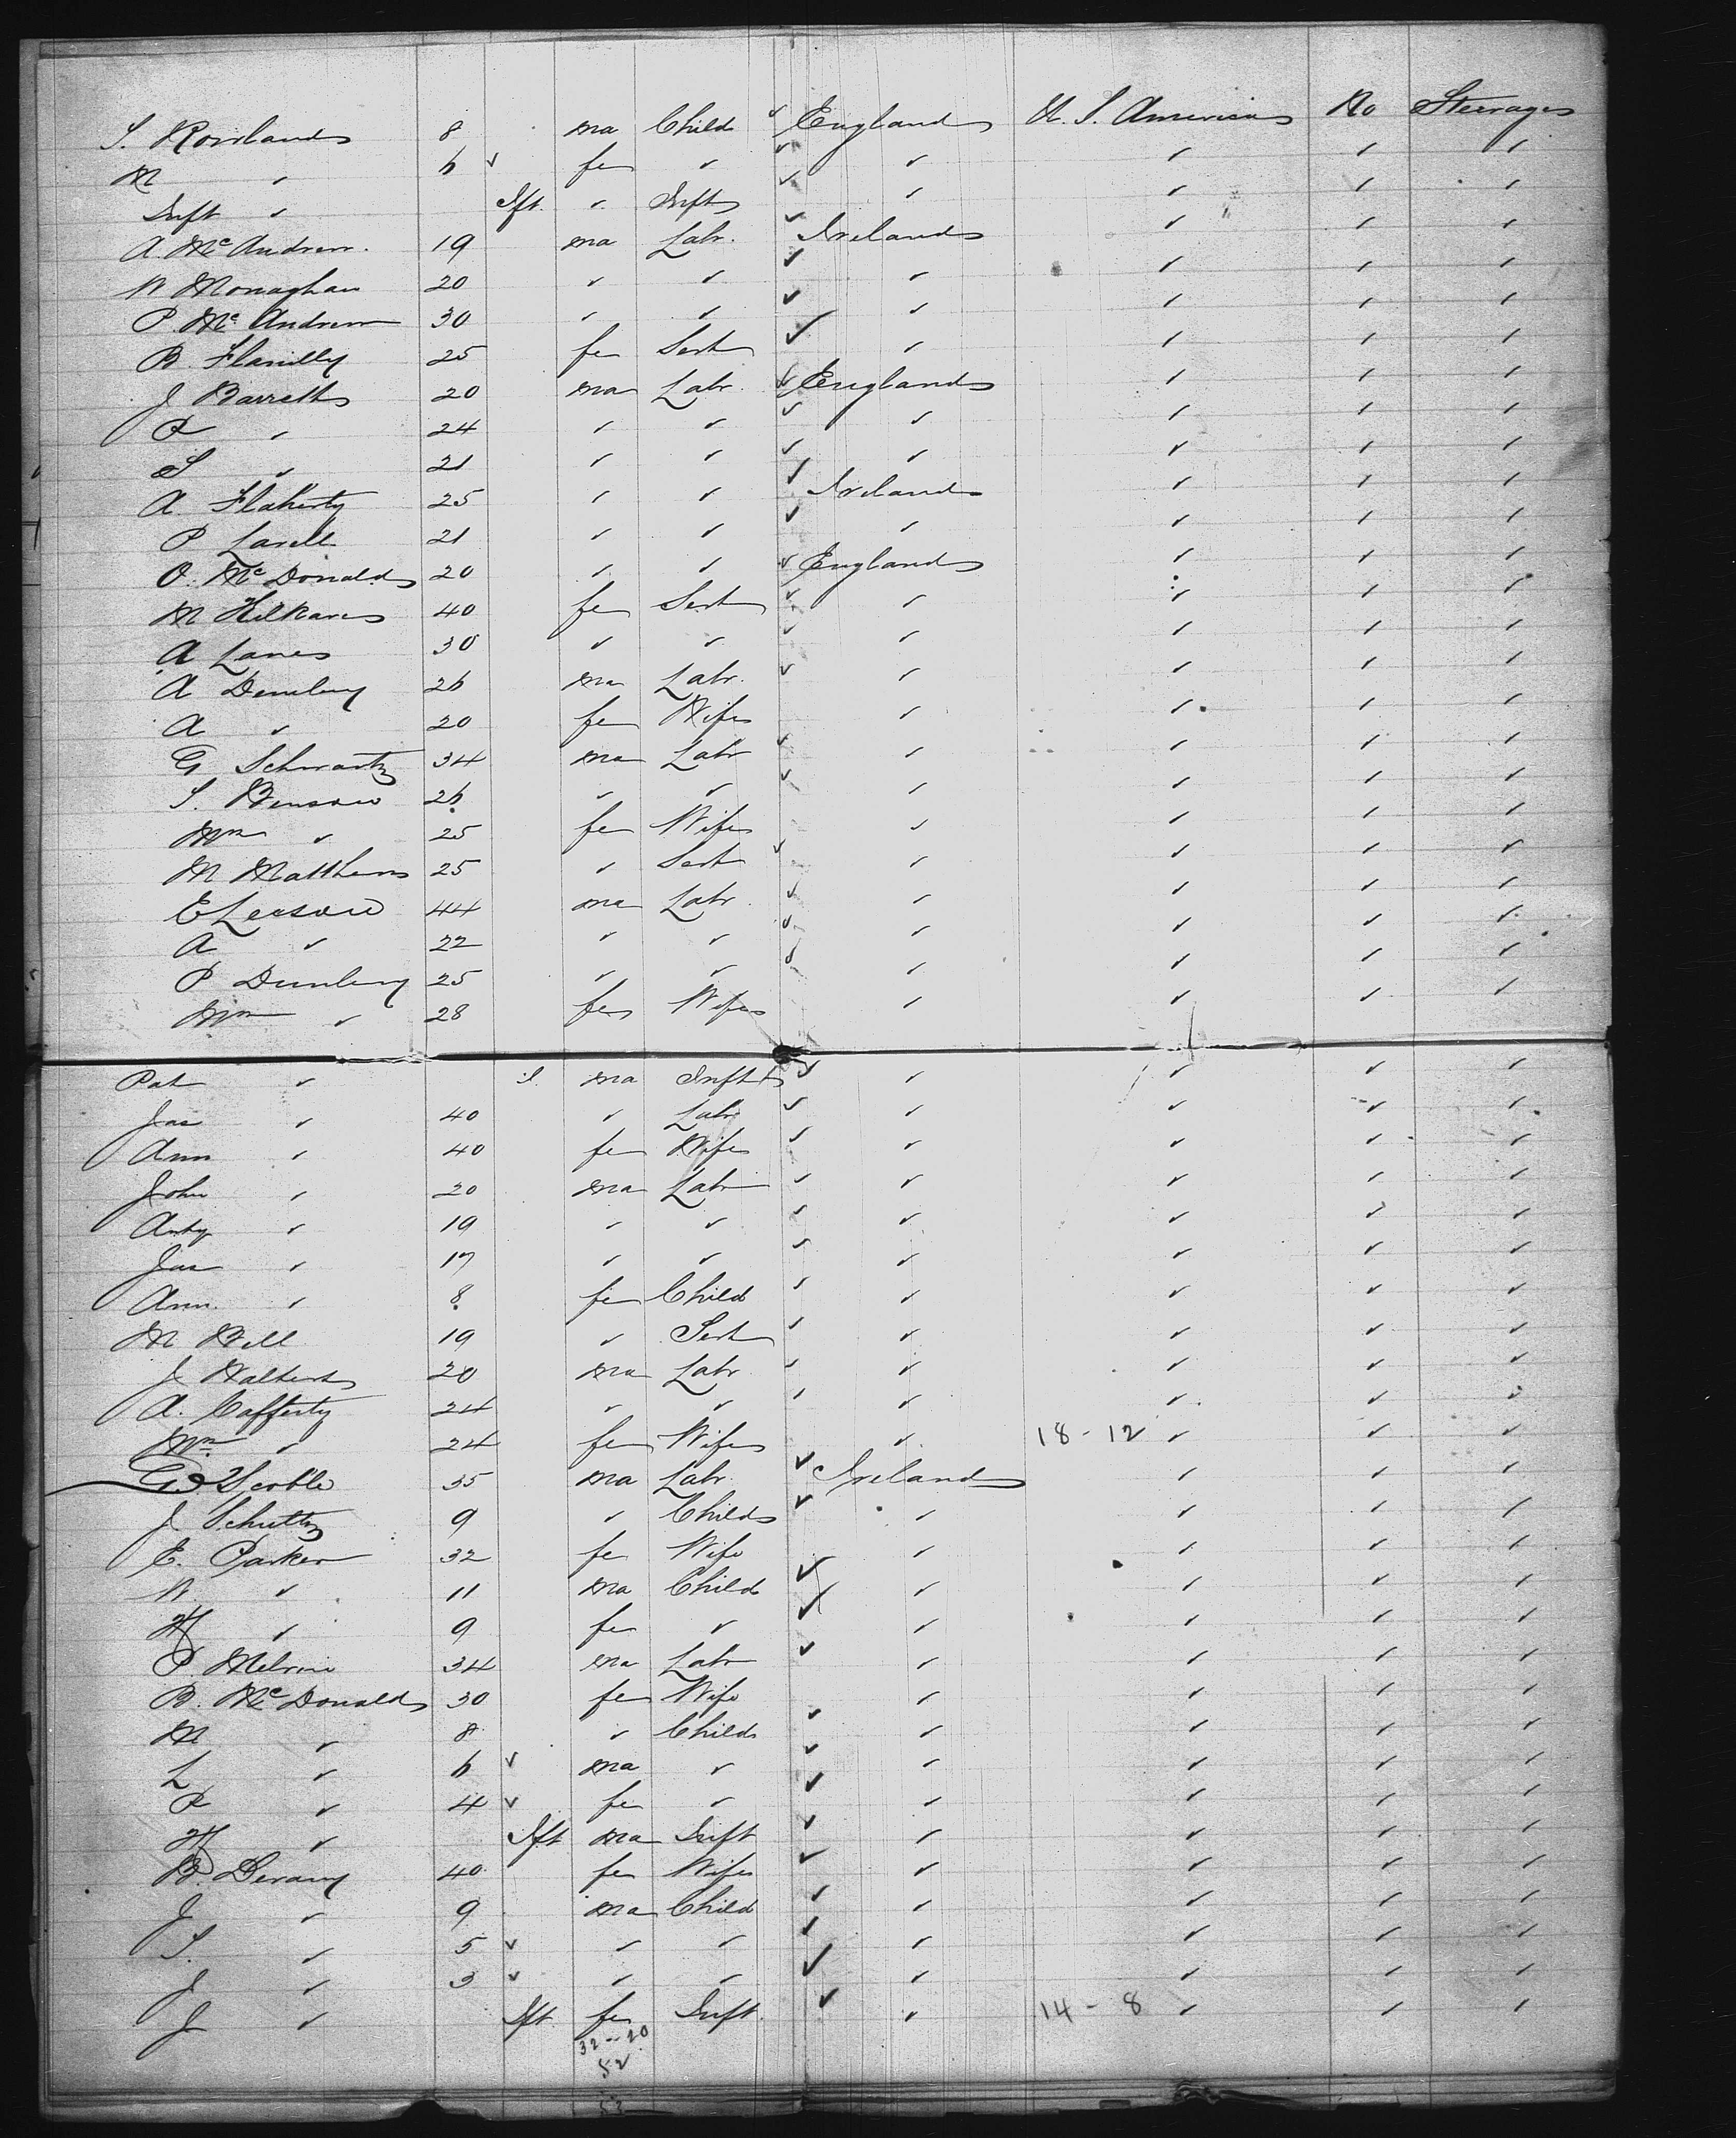 S. Rowlands 8 ma Child ✓ England U. S. America No Steerage
M ✓ 6 ✓ fe ✓ ✓ ✓ ✓ ✓ ✓
Inft ✓ Ift. ✓ Inft ✓ ✓ ✓ ✓ ✓
A. McAndrew. 19 ma Labr. ✓ Ireland ✓ ✓ ✓
W Monaghan 20 ✓ ✓ ✓ ✓ ✓ ✓ ✓
P. Mc Andrew 30 ✓ ✓ ✓ ✓ ✓ ✓ ✓
B. Flanilly 25 fe Sert ✓ ✓ ✓ ✓ ✓
J Barrett 20 ma Labr. ✓ England ✓ ✓ ✓
P ✓ 24 ✓ ✓ ✓ ✓ ✓ ✓ ✓
S ✓ 21 ✓ ✓ ✓ ✓ ✓ ✓ ✓
A. Flaherty 25 ✓ ✓ ✓ Ireland ✓ ✓ ✓
P Lavell 21 ✓ ✓ ✓ ✓ ✓ ✓ ✓
O. McDonald 20 ✓ ✓ ✓ England ✓ ✓ ✓
M 40 fe Sert ✓ ✓ ✓ ✓ ✓
A Lanes 30 ✓ ✓ ✓ ✓ ✓ ✓ ✓
A 26 ma Labr. ✓ ✓ ✓ ✓ ✓
A ✓ 20 fe Wife ✓ ✓ ✓ ✓
G Schwartz 34 ma Labr ✓ ✓ ✓ ✓ ✓
S. Benson 26 ✓ ✓ ✓ ✓ ✓ ✓ ✓
Mrs ✓ 25 fe Wife ✓ ✓ ✓ ✓
M Matthews 25 ✓ Sert ✓ ✓ ✓ ✓ ✓
E Leeson 44 ma Labr. ✓ ✓ ✓ ✓ ✓
A ✓ 22 ✓ ✓ ✓ ✓ ✓ ✓ ✓
P 25 ✓ ✓ ✓ ✓ ✓ ✓ ✓
Mrs ✓ 28 fe Wife ✓ ✓ ✓ ✓
Pat ✓ I. ma Inft ✓ ✓ ✓ ✓ ✓
Jas ✓ 40 ✓ Labr ✓ ✓ ✓ ✓ ✓
Ann ✓ 40 fe Wife ✓ ✓ ✓ ✓ ✓
John ✓ 20 ma Labr ✓ ✓ ✓ ✓ ✓
Anty ✓ 19 ✓ ✓ ✓ ✓ ✓ ✓ ✓
Jas ✓ 17 ✓ ✓ ✓ ✓ ✓ ✓ ✓
Ann. ✓ 8 fe Child ✓ ✓ ✓ ✓ ✓
M Bell 19 ✓ Sert ✓ ✓ ✓ ✓ ✓
J. Walters 20 ma Labr ✓ ✓ ✓ ✓ ✓
A. Cafferty 24 ✓ ✓ ✓ ✓ ✓ ✓ ✓
Mrs ✓ 24 fe Wife ✓ 18-12 ✓ ✓ ✓
G. Scoble 35 ma Labr. ✓ Ireland ✓ ✓ ✓
J Schultz 9 ✓ Child ✓ ✓ ✓ ✓ ✓
E. Parker 32 fe Wife ✓ ✓ ✓ ✓
W. ✓ 11 ma Child ✓ ✓ ✓ ✓ ✓
H ✓ 9 fe ✓ ✓ ✓ ✓ ✓ ✓
P Melvin 34 ma Labr ✓ ✓ ✓ ✓ ✓
B. McDonald 30 fe Wife ✓ ✓ ✓ ✓
M ✓ 8 ✓ Child ✓ ✓ ✓ ✓ ✓
L ✓ 6 ✓ ma ✓ ✓ ✓ ✓ ✓ ✓
P ✓ 4 ✓ fe ✓ ✓ ✓ ✓ ✓ ✓
H ✓ Ift ma Inft ✓ ✓ ✓ ✓ ✓
B. Devany 40 fe Wife ✓ ✓ ✓ ✓ ✓
J ✓ 9 ma Child ✓ ✓ ✓ ✓ ✓
S. ✓ 5 ✓ ✓ ✓ ✓ ✓ ✓ ✓ ✓
J ✓ 3 ✓ ✓ ✓ ✓ ✓ ✓ ✓ ✓
J ✓ Ift. fe Inft. ✓ ✓ 14 - 8 ✓ ✓ ✓
32-20
52
52